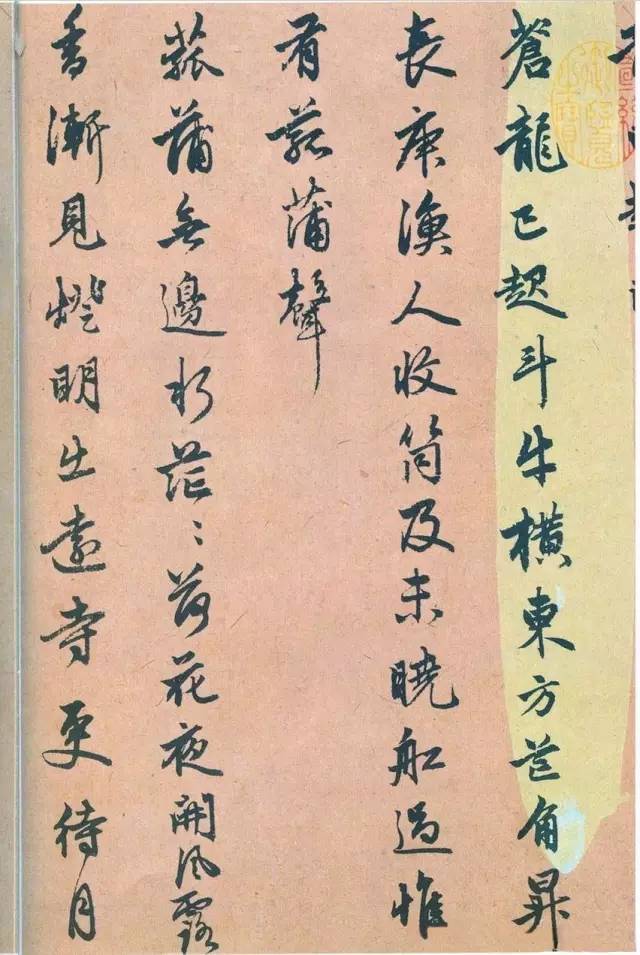 蒼龍已起斗牛橫東方芒角昇
長庚漁人收筒及未曉船過惟
有菰蒲聲
菰蒲無邊水茫〻荷花夜開風露
香漸見燈明出遠寺更待月